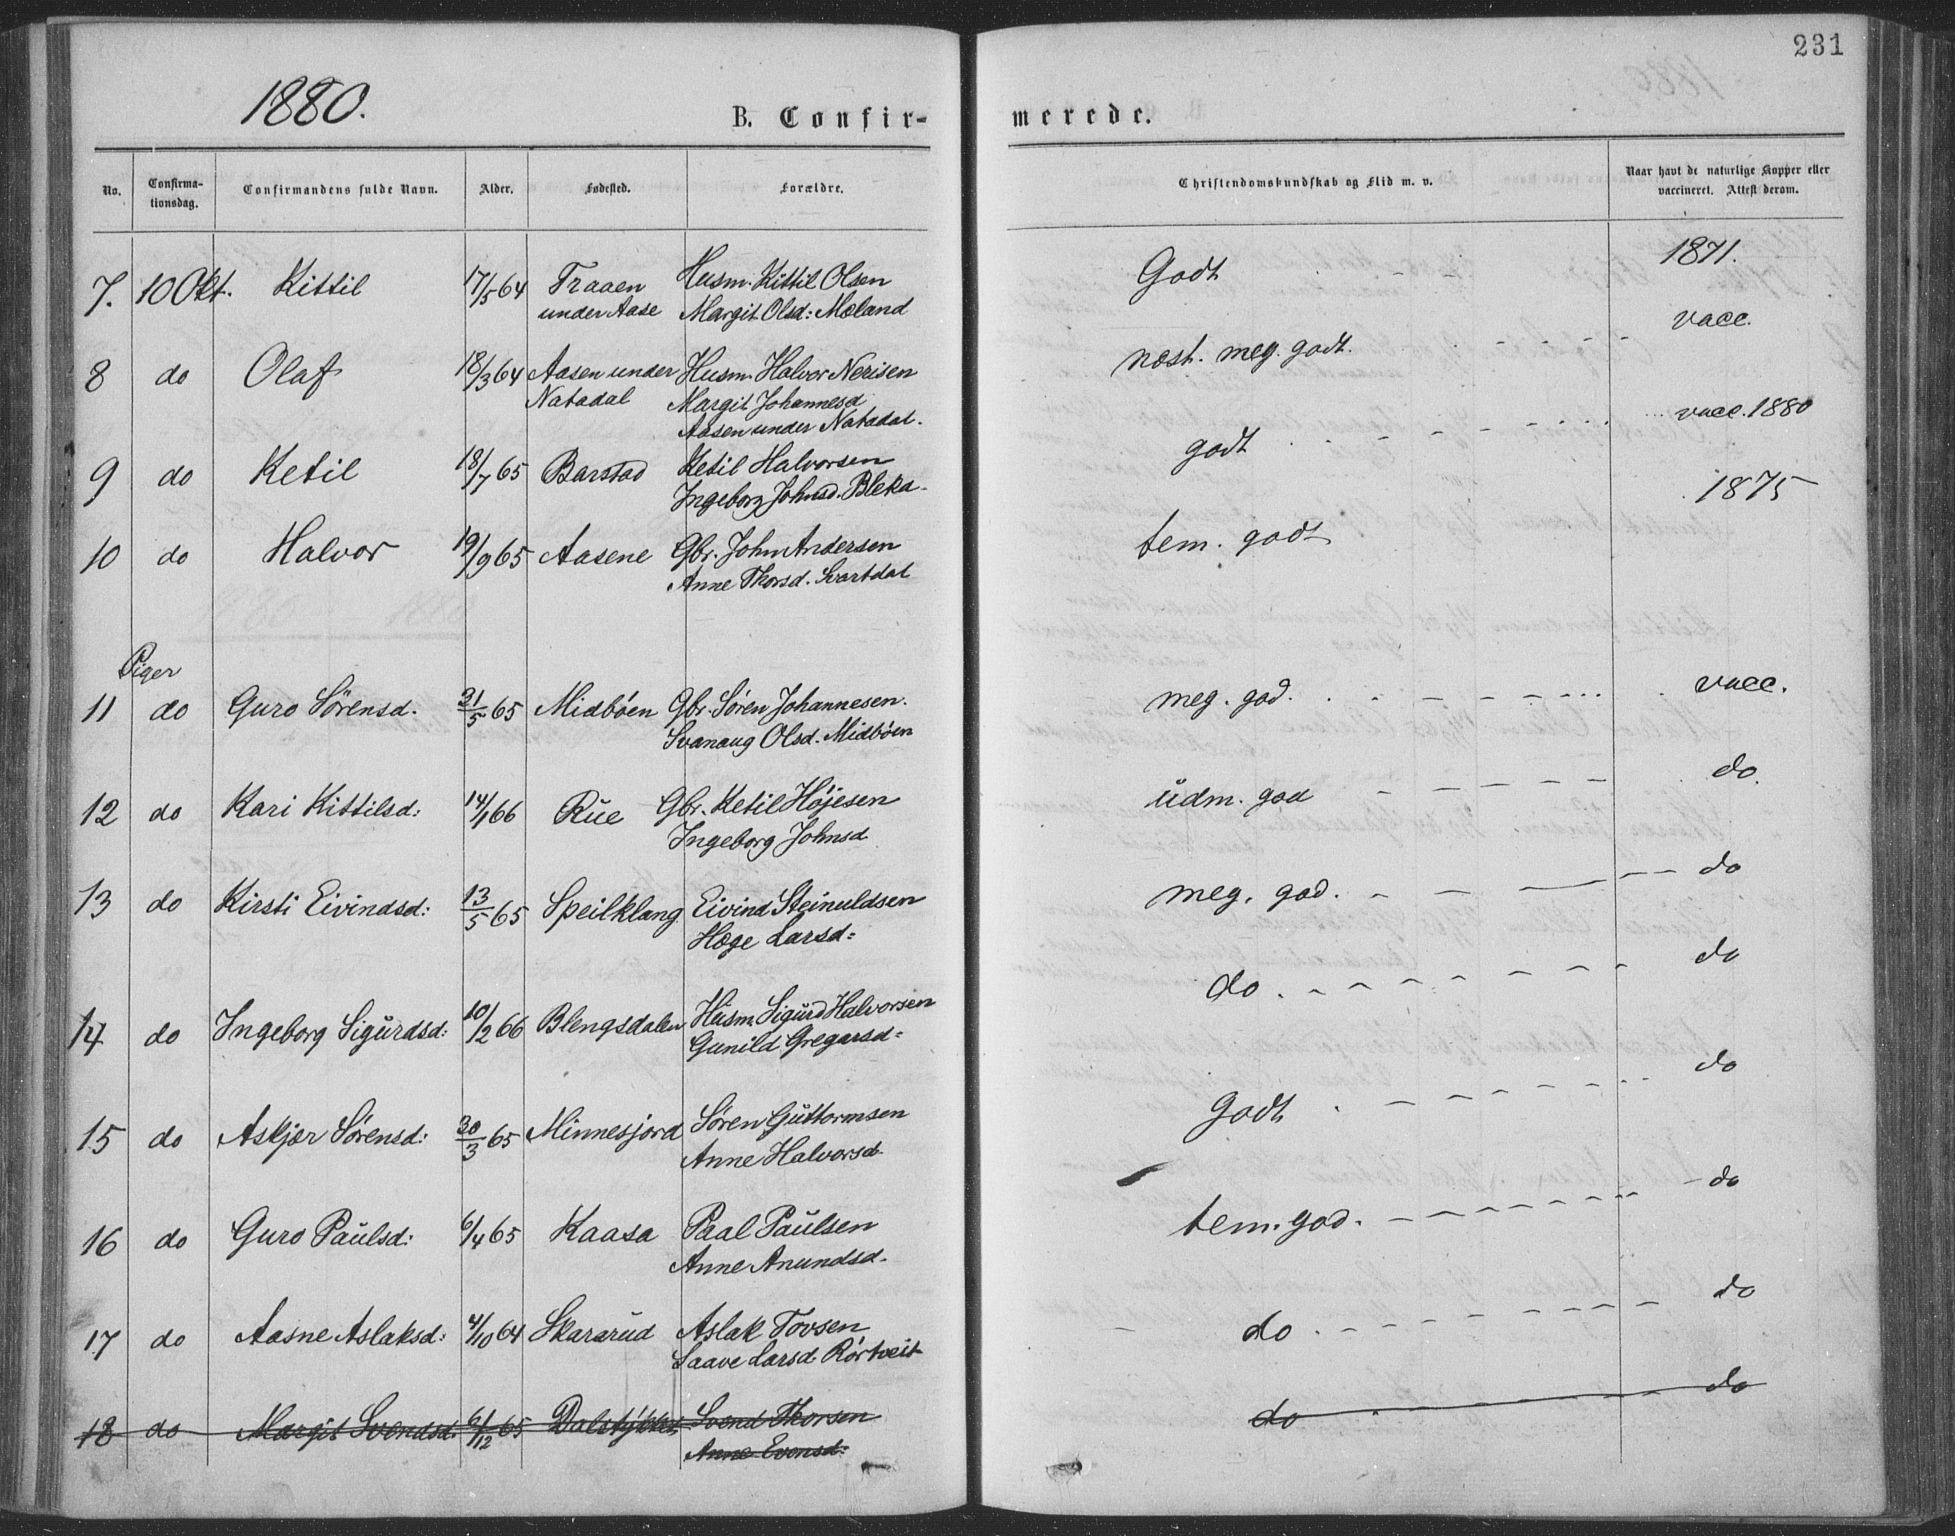 231
1880.
B. Confir-
merede.
No.
Confirma-
tionsdag.
Confirmandens fulde Navn.
Alder.
Fødested.
Forældre.
Christendomskundskab og Flid m. v.
Naar havt de naturlige Kopper eller
vaccineret. Attest derom.
7. 10 Okt. Kittil 17/5 64 Traaen Husm. Kittil Olsen Godt 1871.
under Aase Margit Olsd: Mæland vacc.
8 do Olaf 18/3 64 Aasen under Husm. Halvor Nerisen næst. meg. godt.
Natadal Margit Johannesd
Aasen under Natadal. vacc. 1880
9 do Ketil 18/7 65 Barstad Ketil Halvorsen godt
Ingeborg Johnsd. Bleka 1875
10 do Halvor 19/9 65 Aasene Gbr. John Andersen tem. godt
Anne Thorsd. Svartdal
Piger
11 do Guro Sörensd. 31/5 65 Midbøen Gbr. Søren Johannesen. meg. god. vacc.
Svanaug Olsd. Midbøen
12 do Kari Kittilsd: 14/1 66 Rue Gbr. Ketil Højesen udm. god do.
Ingeborg Johnsd
13 do Kirsti Eivindsd: 13/5 65 Speilklang Eivind Steinuldsen meg. god. do
Hæge Larsd:
14 do Ingeborg Sigurdsd: 10/2 66 Blengsdalen Husm Sigurd Halvorsen do. do
Gunild Gregarsd:
15 do Askjær Sørensd: 30/3 65 Minnesjord Søren Guttormsen Godt do
Anne Halvorsd.
16 do Guro Paulsd: 6/4 65 Kaasa Paal Paulsen tem. god. do
Anne Anundsd.
17 do Aasne Aslaksd: 4/10 64 Skararud Aslak Tovsen do. do
Saave Larsd. Rørtveit
18 do Margit Svendsd. 6/12 65 Dalstykket Svend Thorsen do do
Anne Evensd: